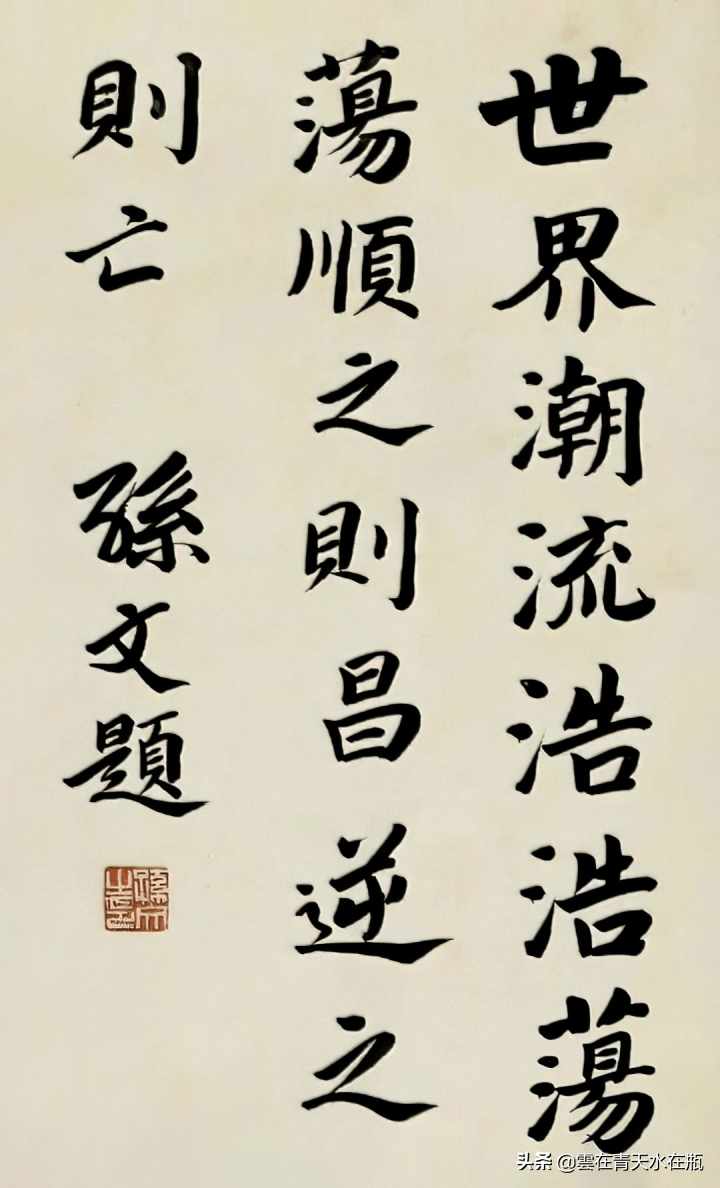 世界潮流浩浩蕩
蕩順之則昌逆之
則亡 孫文題
孫文之印
头条 @雲在青天水在瓶